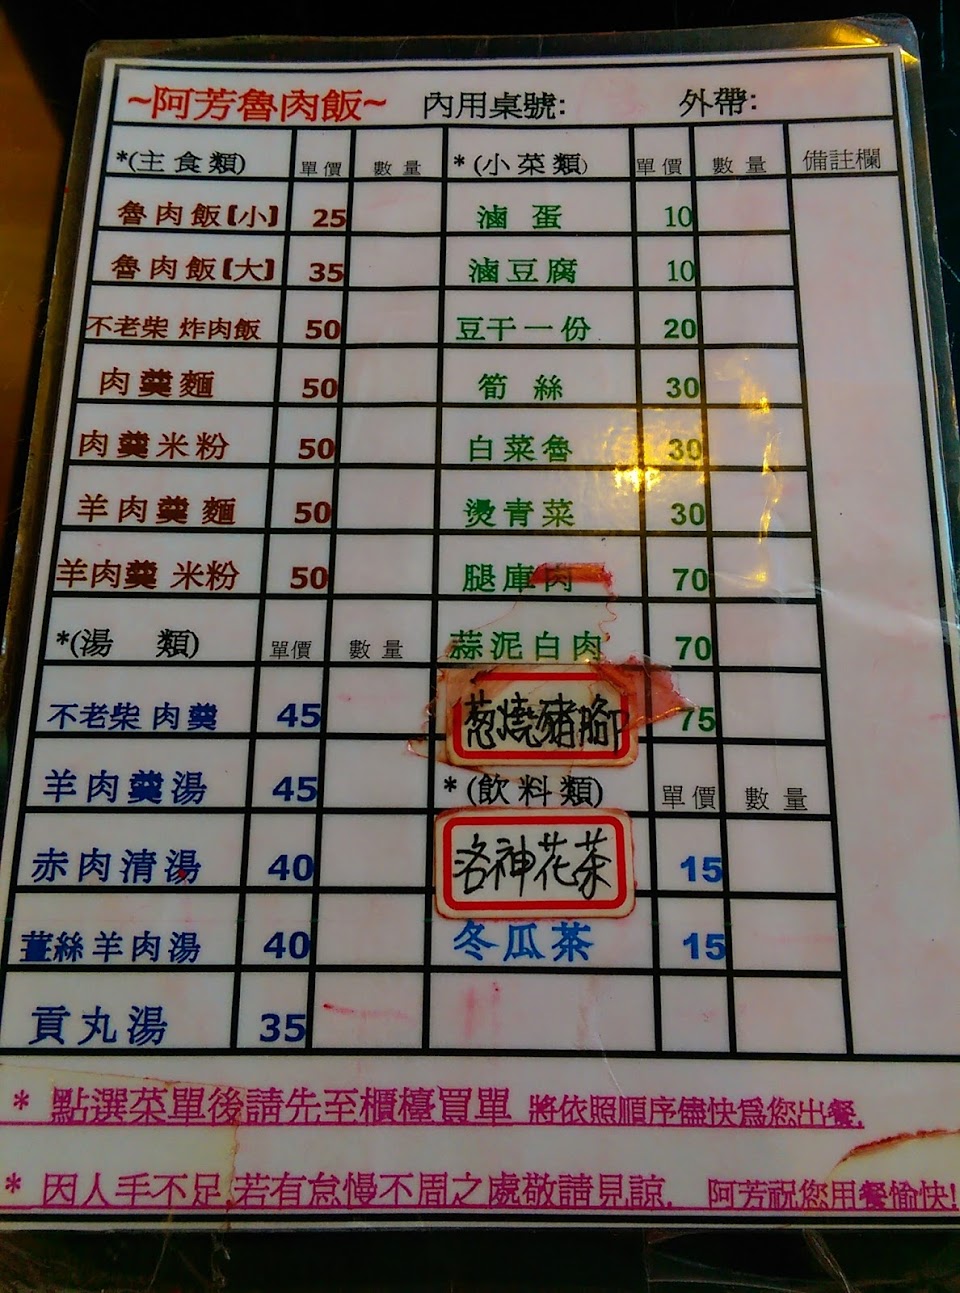 ~阿芳魯肉飯~ 內用桌號: 外帶:
*(主食類) 單價 數量 *(小菜類) 單價 數量 備註欄
魯肉飯(小) 25 滷蛋 10
魯肉飯(大) 35 滷豆腐 10
不老柴 炸肉飯 50 豆干一份 20
肉羹麵 50 筍絲 30
肉羹米粉 50 白菜魯 30
羊肉羹麵 50 燙青菜 30
羊肉羹米粉 50 腿庫肉 70
*(湯 類) 單價 數量 蒜泥白肉 70
不老柴肉羹 45 葱燒豬腳 75
羊肉羹湯 45 *(飲料類) 單價 數量
赤肉清湯 40 洛神花茶 15
薑絲羊肉湯 40 冬瓜茶 15
貢丸湯 35
* 點選菜單後請先至櫃檯買單 將依照順序儘快為您出餐.
* 因人手不足 若有怠慢不周之處敬請見諒. 阿芳祝您用餐愉快!